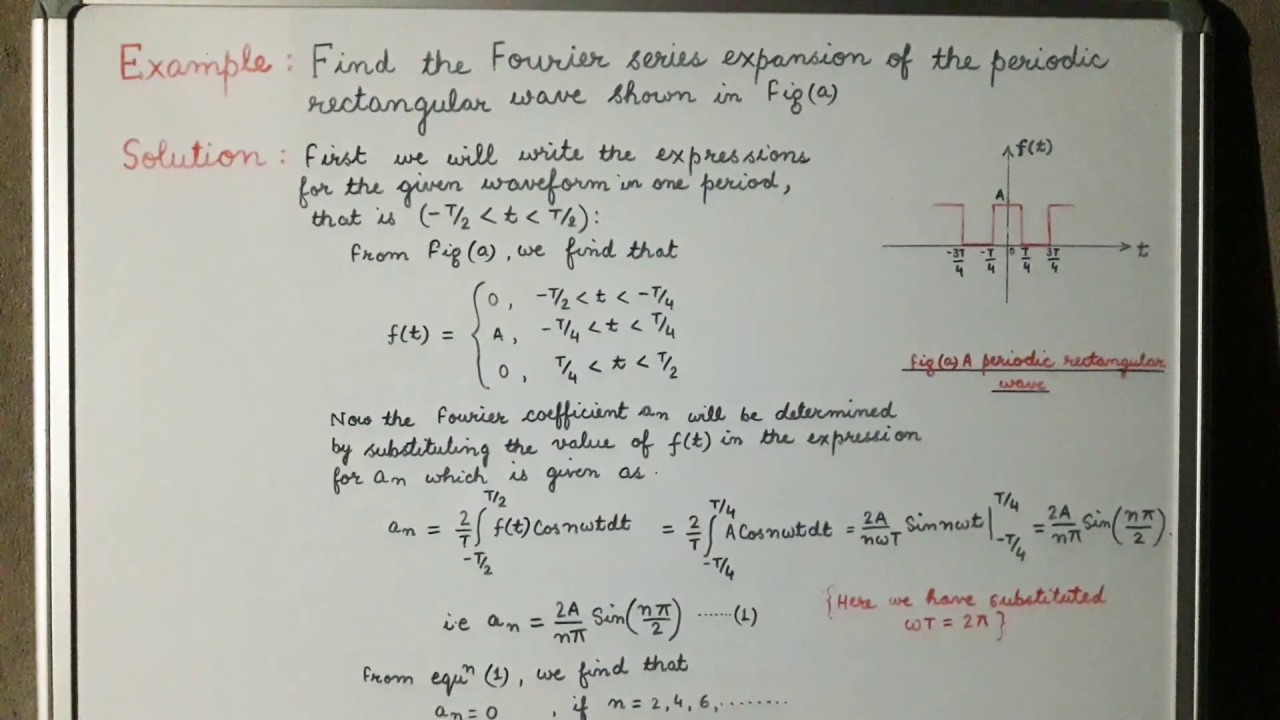 Example: Find the Fourier series expansion of the periodic
rectangular wave shown in Fig(a)
Solution: First we will write the expressions
for the given waveform in one period,
that is (-T/2 < t < T/2):
From Fig(a), we find that
f(t) = { 0, -T/2 < t < -T/4
A, -T/4 < t < T/4
0, T/4 < t < T/2
f(t)
A
-3T/4 -T/4 0 T/4 3T/4 t
Fig(a) A periodic rectangular
wave
Now the Fourier coefficient an will be determined
by substituting the value of f(t) in the expression
for an which is given as.
an = 2/T ∫_{-T/2}^{T/2} f(t)Cosnωtdt = 2/T ∫_{-T/4}^{T/4} ACosnωtdt = 2A/nωT Sinnωt |_{-T/4}^{T/4} = 2A/nπ Sin(nπ/2).
i.e an = 2A/nπ Sin(nπ/2) ......(1)
{Here we have substituted
ωT = 2π}
From equⁿ (1), we find that
an = 0 , if n = 2, 4, 6, ........